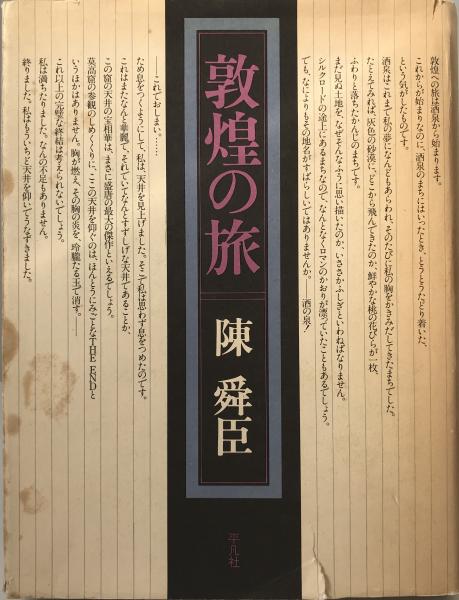 敦煌への旅は酒泉から始まります。
これからが始まりなのに、酒泉のまちにはいったとき、とうとうたどり着いた、
という気がしたものです。
酒泉はこれまで私の夢になんどもあらわれ、そのたびに私の胸をかきみだしてきたまちでした。
たとえてみれば、灰色の砂漠に、どこから飛んできたのか、鮮やかな桃の花びらが一枚、
ふわりと落ちたかんじのまちです。
まだ見ぬ土地を、なぜそんなふうに思い描いたのか、いささかふしぎといわねばなりません。
シルクロードの途上にあるまちなので、なんとなくロマンのかおりが漂っていたこともあるでしょう。
でも、なによりもその地名がすばらしいではありませんか。――酒の泉！
敦煌の旅
陳 舜臣
平凡社
――これでおしまい。……
ため息をつくようにして、私は、天井を見上げました。そこで私は思わず息をつめたのです。
これはまたなんと華麗で、それでいてなんとすずしげな天井であることか。
この窟の天井の宝相華は、まさに盛唐の最大の傑作といえるでしょう。
莫高窟の参観のしめくくりに、ここの天井を仰ぐのは、ほんとうにみごとなTHE ENDと
いうほかはありません。胸が燃え、その胸の炎を、玲瓏たる玉で消す。――
これ以上の完璧な終結は考えられないでしょう。
私は満ちたりました。なんの不足もありません。
終りました。私はもういちど天井を仰いでうなずきました。